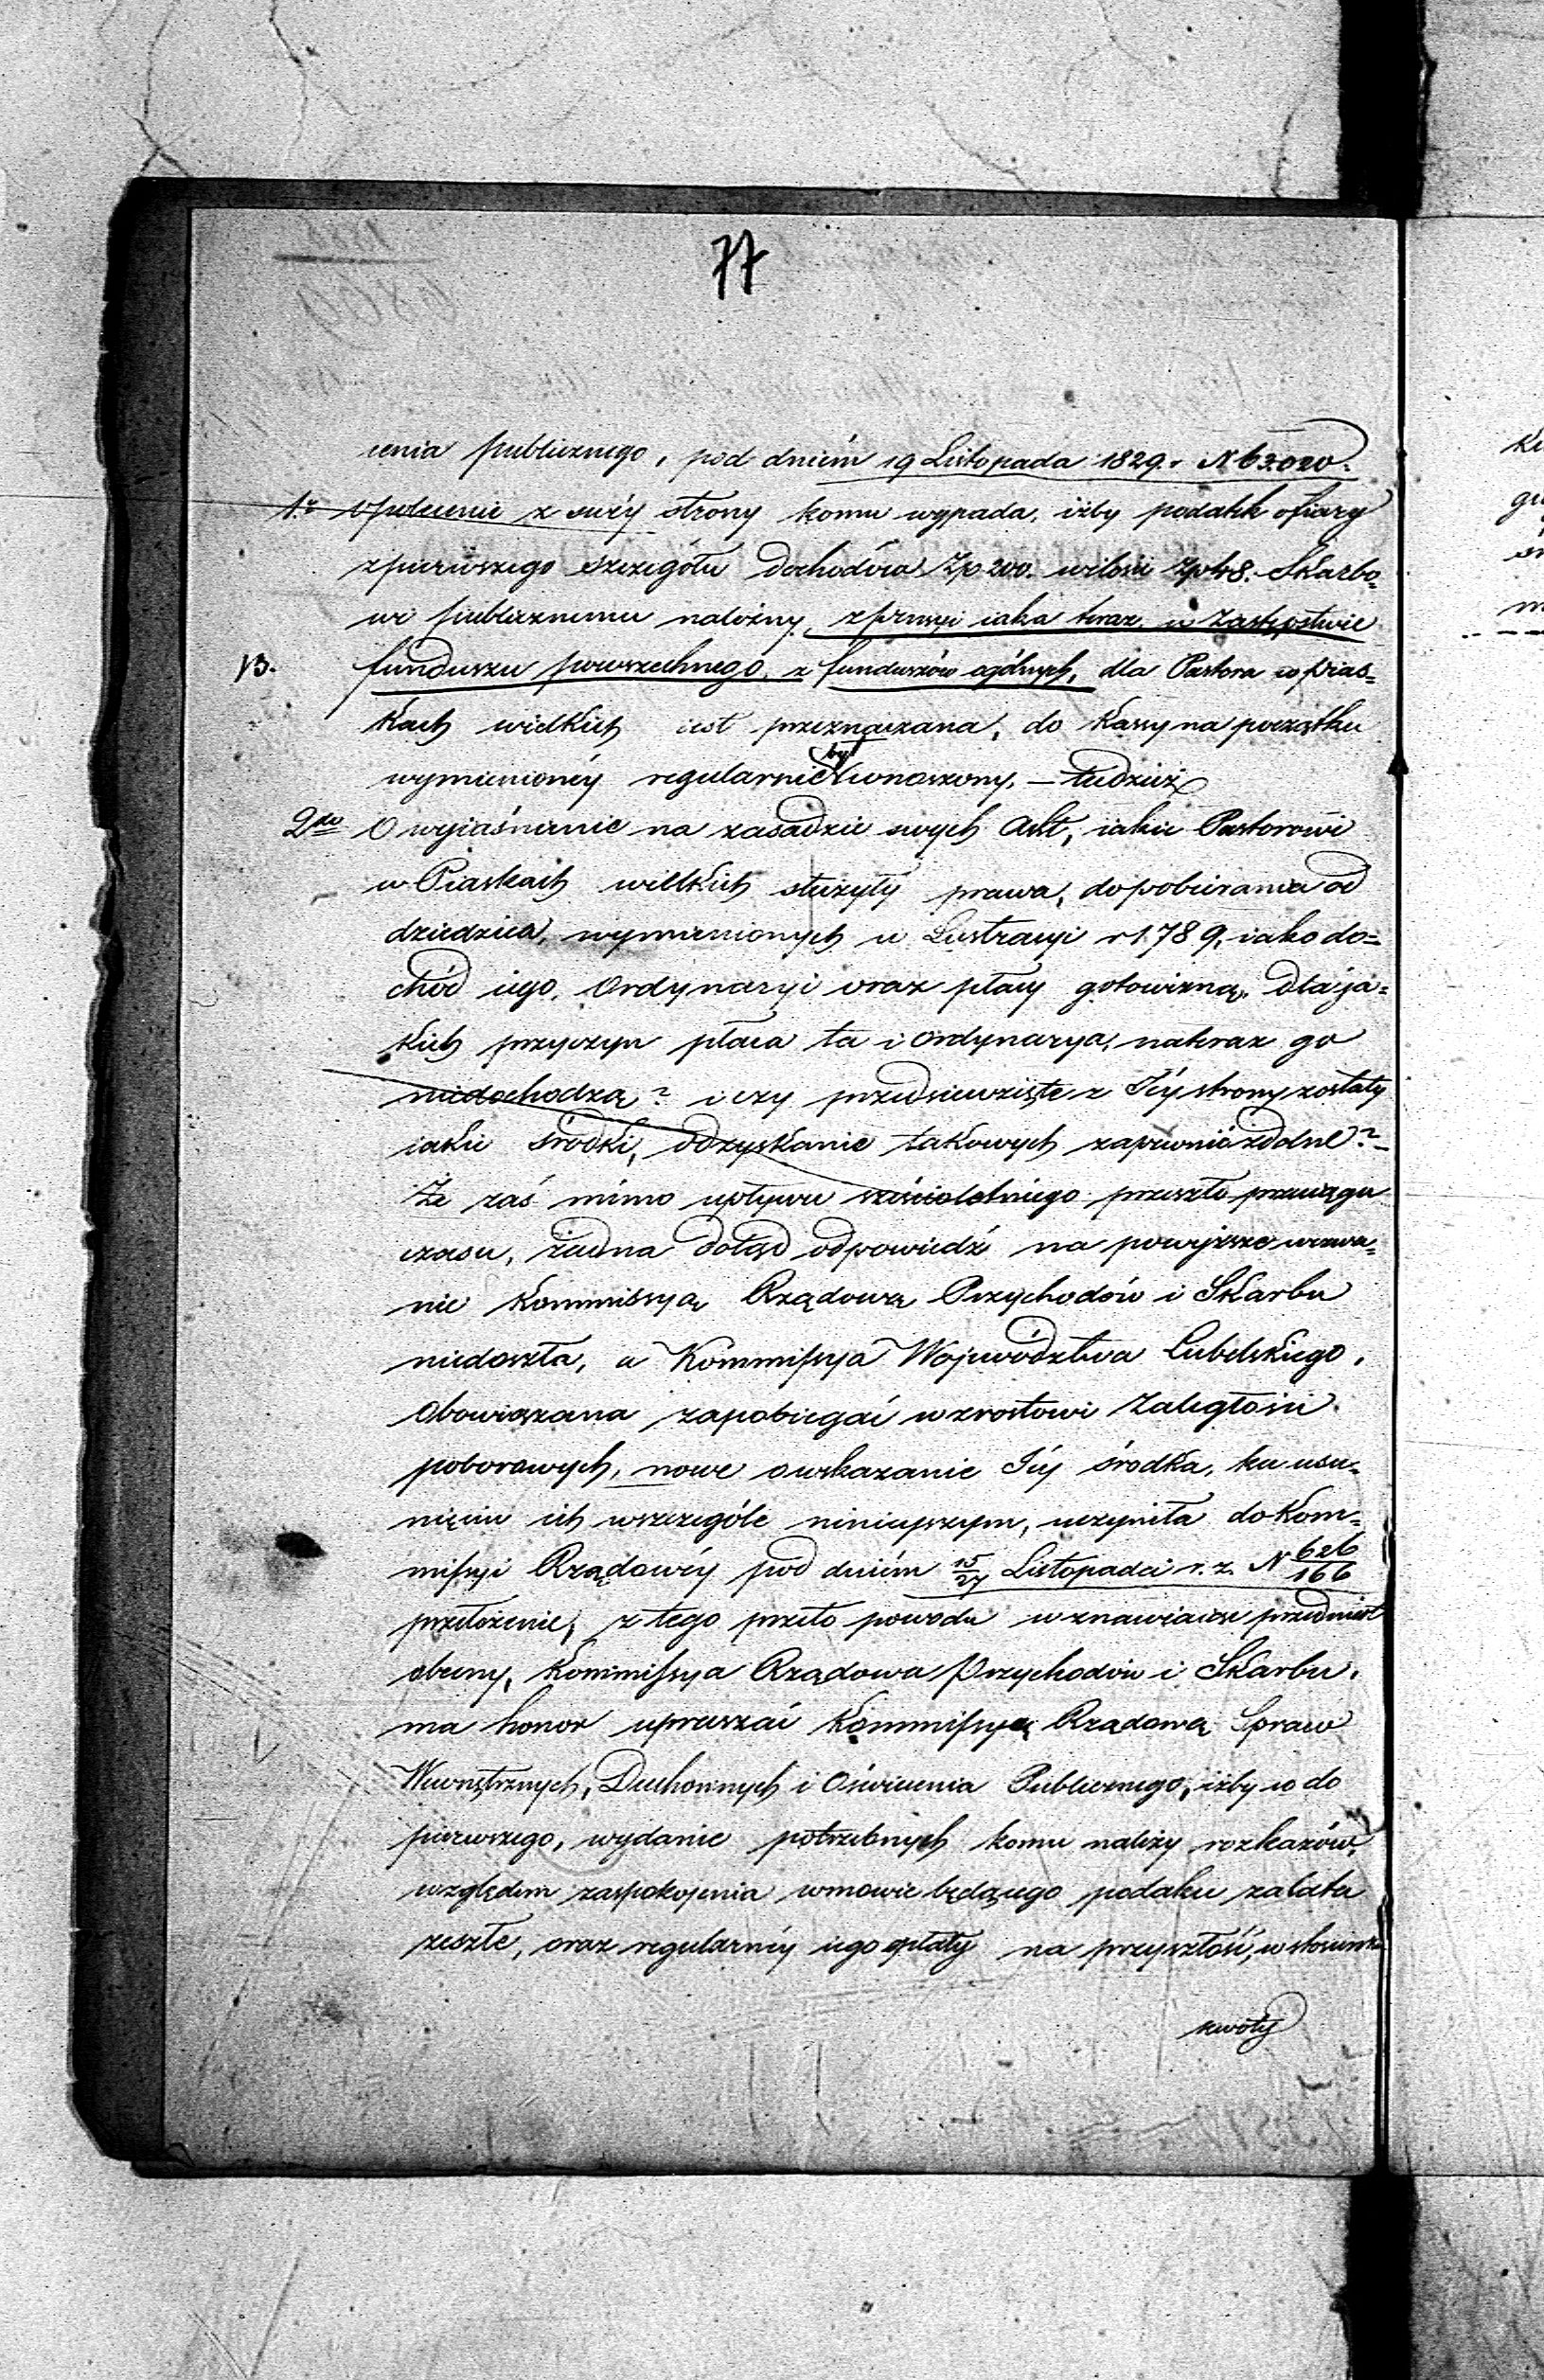 77
cenia publicznego, pod dniem 19 Listopada 1829. N 63020.
1.o O polecenie z swéy strony komu wypada, iżby podatek ofiary
z pierwszego szczegółu dochodów Zp 200. w ilości Zp 48. Skarbo-
wi publicznemu należny, z pensyi iaka teraz w Zastępstwie
B. funduszu powszechnego, z funduszów ogólnych, dla Pastora w Pias=
kach wielkich iest przeznaczana, do Kassy na początku
wymienionéy regularnie był wnoszony, — tudzież
2do O wyiaśnienie na zasadzie swych Akt, iakie Pastorowi
w Piaskach wielkich służyły prawa, do pobierania od
dziedzica, wymienionych w Lustracyi r 1789, iako do=
chód iego, Ordynaryi oraz płacy gotowizną, dla ja=
kich przyczyn płaca ta i Ordynarya, nateraz go
niedochodzą? i czy przedsiewzięte z Iéy strony zostały
iakie środki, odzyskanie takowych zapewnić zdolne?
Że zaś mimo upływu sześcioletniego przeszło przeciągu
czasu, żadna dotąd odpowiedź na powyższe wezwa=
nie Kommissyą Rządową Przychodów i Skarbu
niedoszła, a Kommissya Województwa Lubelskiego,
obowiązana zapobiegać wzrostowi Zaległości
poborowych, nowe o wskazanie Iéy środka, ku usu=
nięciu ich w szczególe ninieyszym, uczyniła do Kom=
missyi Rządowéy pod dniem 15/27 Listopada r. z. N 626/166
przełożenie, z tego przeto powodu wznawiaiąc przedmiot
obecny, Kommissya Rządowa Przychodów i Skarbu,
ma honor upraszać Kommissyą Rządową Spraw
Wewnętrznych, Duchownych i Oświecenia Publicznego, iżby co do
pierwszego, wydanie potrzebnych komu należy rozkazów,
względem zaspokojenia w mowie będącego podatku za lata
zeszłe, oraz regularnéy iego opłaty na przyszłość, w stosunku
kwoty